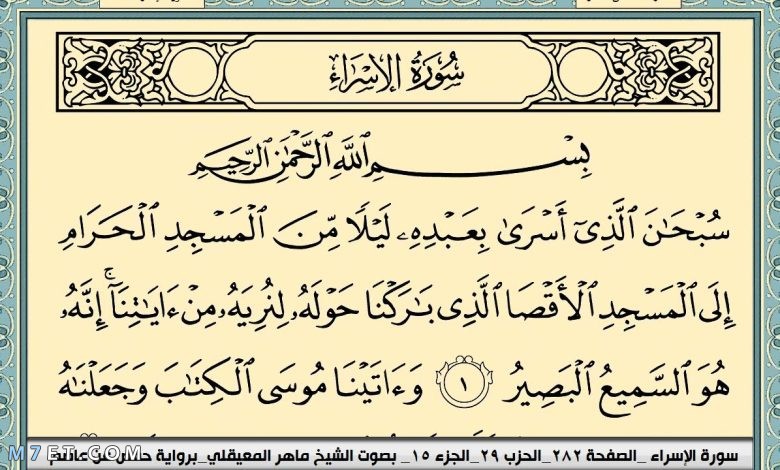 سُورَةُ الإِسْرَاءِ
بِسْمِ اللَّهِ الرَّحْمَٰنِ الرَّحِيمِ
سُبْحَٰنَ ٱلَّذِىٓ أَسْرَىٰ بِعَبْدِهِۦ لَيْلًا مِّنَ ٱلْمَسْجِدِ ٱلْحَرَامِ
إِلَى ٱلْمَسْجِدِ ٱلْأَقْصَا ٱلَّذِى بَٰرَكْنَا حَوْلَهُۥ لِنُرِيَهُۥ مِنْ ءَايَٰتِنَآ ۚ إِنَّهُۥ
هُوَ ٱلسَّمِيعُ ٱلْبَصِيرُ ١ وَءَاتَيْنَا مُوسَى ٱلْكِتَٰبَ وَجَعَلْنَٰهُ
سورة الإسراء _الصفحة ٢٨٢_الحزب ٢٩_الجزء ١٥_ بصوت الشيخ ماهر المعيقلي_برواية حفص عن عاصم
M7ET.COM